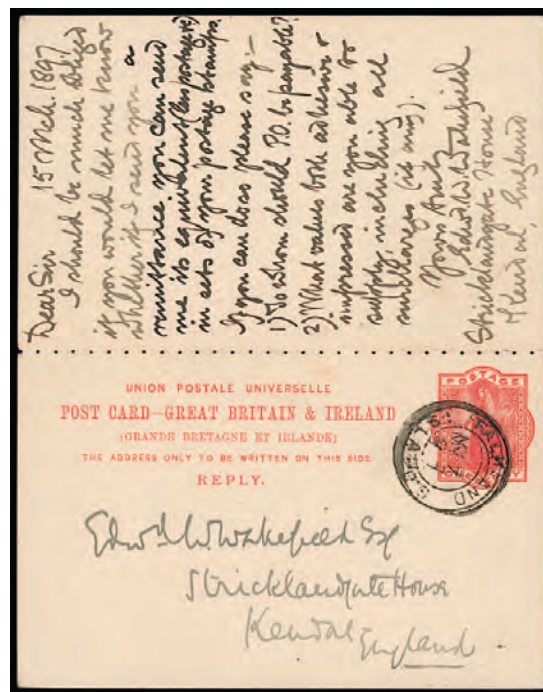 Dear Sir 15 Mch. 1897
I should be much obliged
if you would let me know
whether if I send you a
remittance you can send
me its equivalent (less postage &c)
in sets of your postage stamps.
If you can do so please say:—
1) To whom should P.O. be payable?
2) What values both adhesive &
impressed are you able to
supply including all
surcharges (if any).
Yours truly
Edwd. W. Wakefield
Stricklandgate House
Kendal, England
UNION POSTALE UNIVERSELLE
POST CARD–GREAT BRITAIN & IRELAND
(GRANDE BRETAGNE ET IRLANDE)
THE ADDRESS ONLY TO BE WRITTEN ON THIS SIDE.
REPLY.
POSTAGE
FALKLAND
MY
Edwd W. Wakefield Esq
Stricklandgate House
Kendal
England